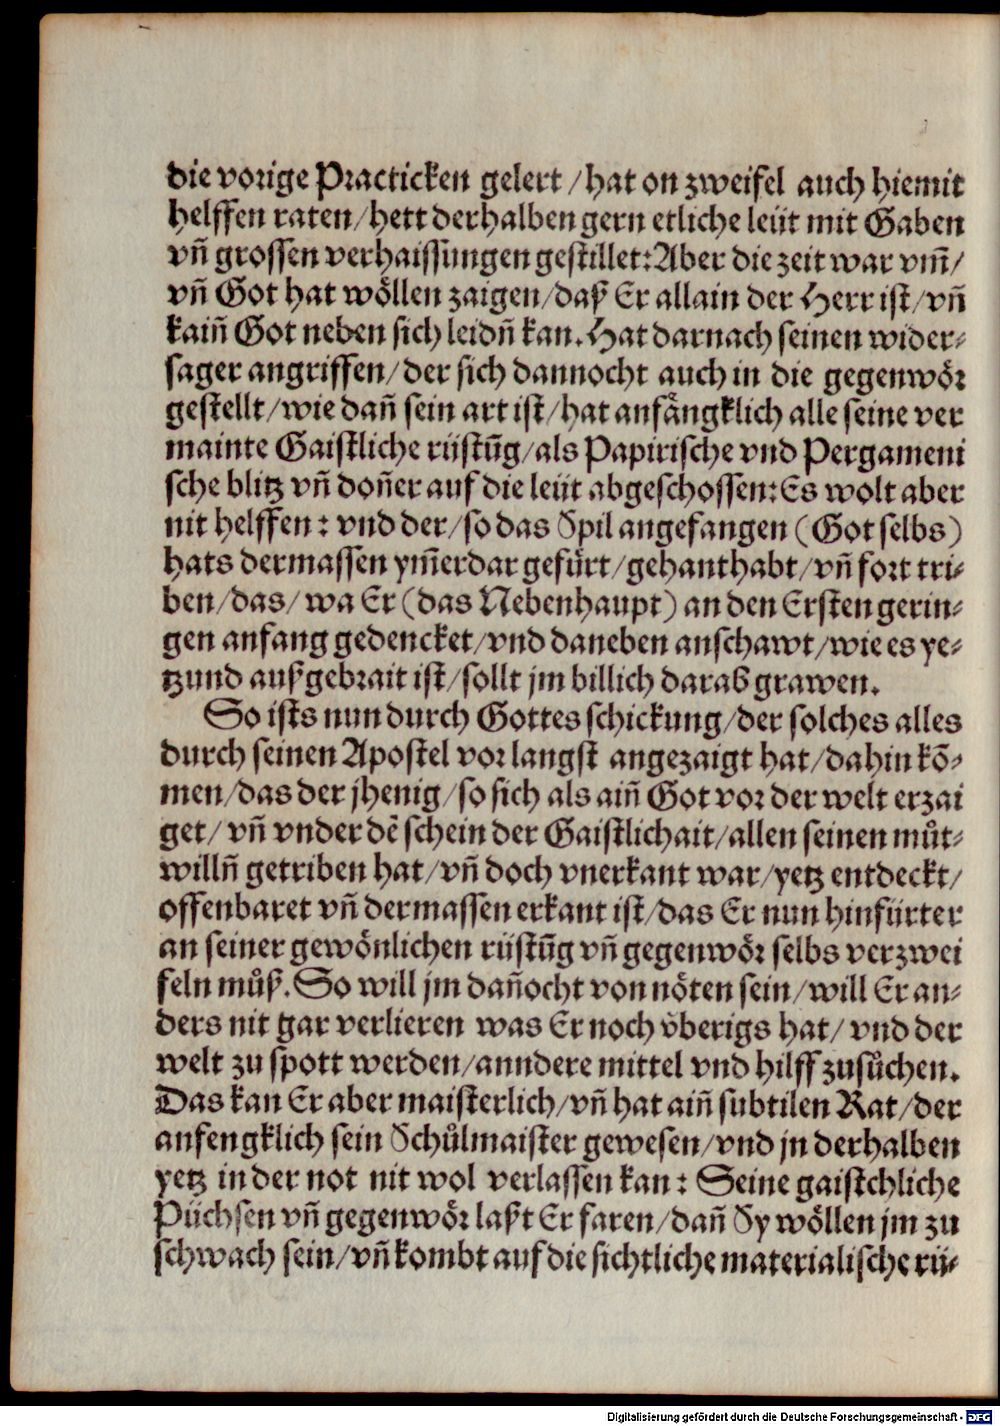 die vorige Practicken gelert/hat on zweifel auch hiemit
helffen raten/hett derhalben gern etliche leüt mit Gaben
vñ grossen verhaissungen gestillet: Aber die zeit war vm̃/
vñ Got hat wöllen zaigen/daß Er allain der Herr ist/vñ
kaiñ Got neben sich leidñ kan. Hat darnach seinen wider-
sager angriffen/der sich dannocht auch in die gegenwör
gestellt/wie dañ sein art ist/hat anfängklich alle seine ver
mainte Gaistliche rüstũg/als Papirische vnd Pergameni
sche blitz vñ doñer auf die leüt abgeschossen: Es wolt aber
nit helffen: vnd der/so das Spil angefangen (Got selbs)
hats dermassen ym̃erdar gefürt/gehanthabt/vñ fort tri-
ben/das/wa Er (das Nebenhaupt) an den Ersten gerin-
gen anfang gedencket/vnd daneben anschawt/wie es ye-
tzund außgebrait ist/sollt jm billich darab grawen.
So ists nun durch Gottes schickung/der solches alles
durch seinen Apostel vor langst angezaigt hat/dahin kõ-
men/das der jhenig/so sich als aiñ Got vor der welt erzai
get/vñ vnder dẽ schein der Gaistlichait/allen seinen můt-
willñ getriben hat/vñ doch vnerkant war/yetz entdeckt/
offenbaret vñ dermassen erkant ist/das Er nun hinfürter
an seiner gewönlichen rüstũg vñ gegenwör selbs verzwei
feln můß. So will jm dañocht von nöten sein/will Er an-
ders nit gar verlieren was Er noch v̈berigs hat/vnd der
welt zu spott werden/anndere mittel vnd hilff zusůchen.
Das kan Er aber maisterlich/vñ hat aiñ subtilen Rat/der
anfengklich sein Schůlmaister gewesen/vnd jn derhalben
yetz in der not nit wol verlassen kan: Seine gaistchliche
Püchsen vñ gegenwör laßt Er faren/dañ Sy wöllen jm zu
schwach sein/vñ kombt auf die sichtliche materialische rü-
Digitalisierung gefördert durch die Deutsche Forschungsgemeinschaft - DFG